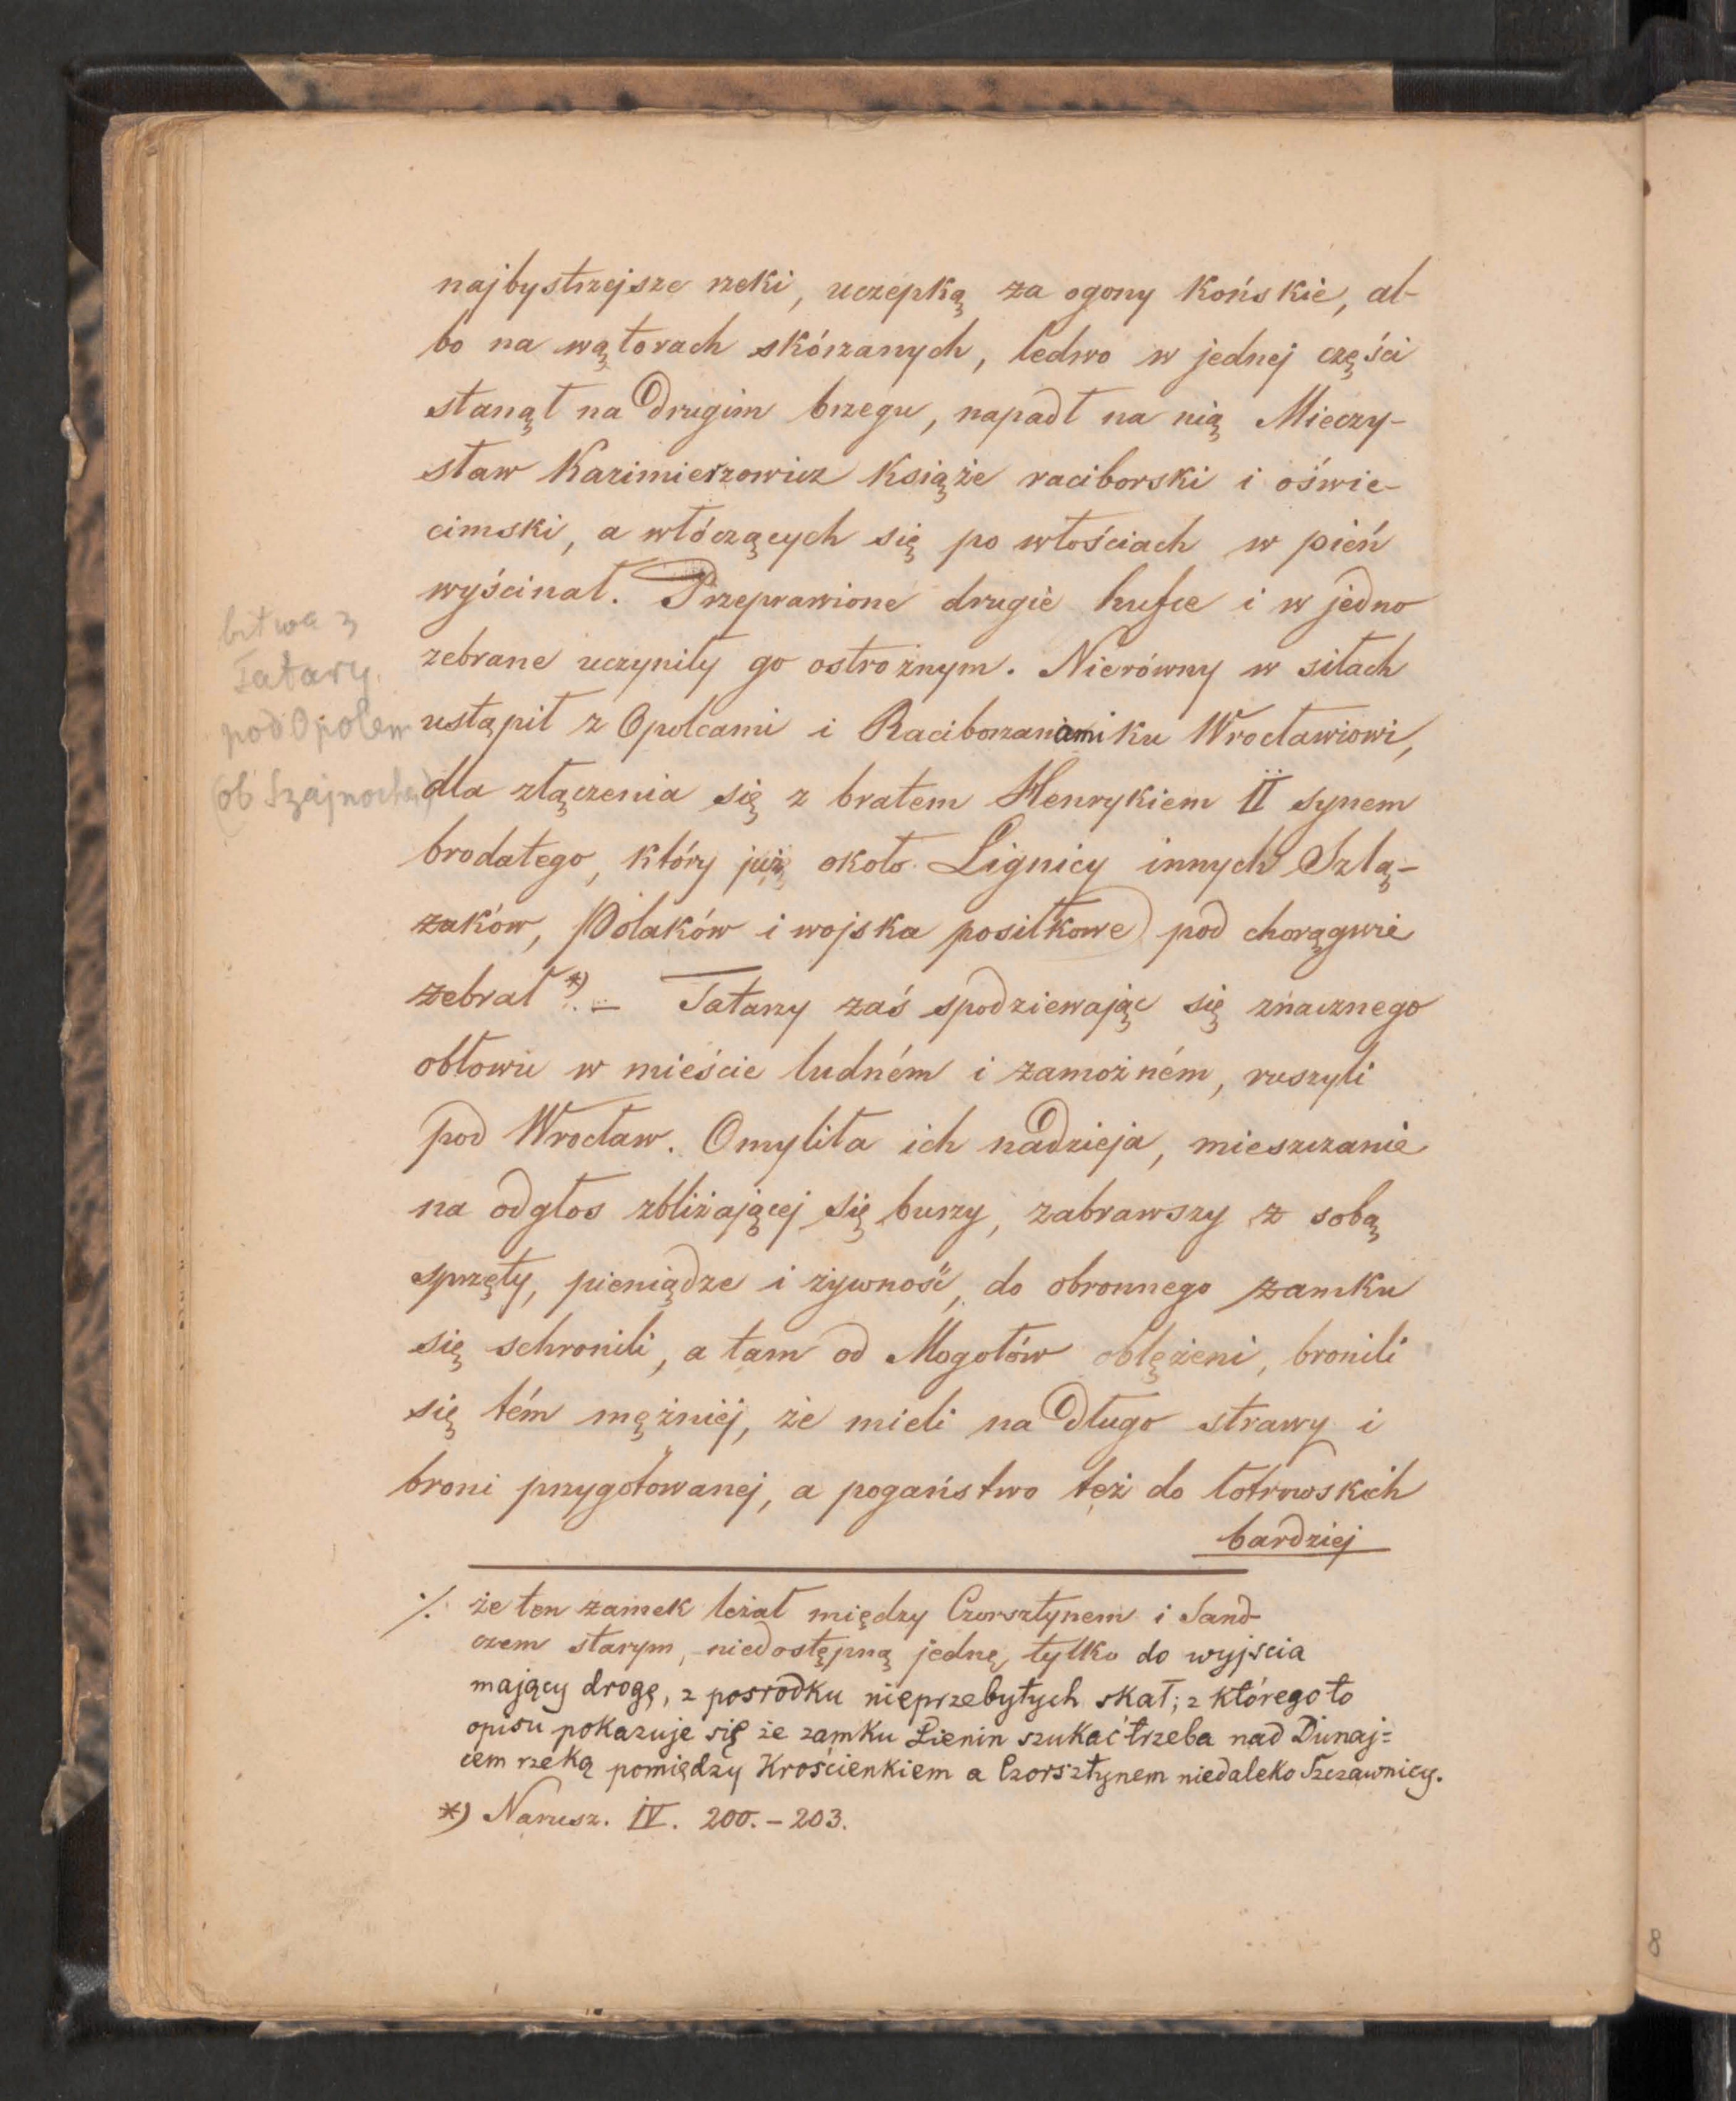 najbystrzejsze rzeki, uczepką za ogony końskie, al-
bo na wątorach skórzanych, ledwo w jednej części
stanął na drugim brzegu, napadł na nią Mieczy-
sław Kazimierzowicz książe raciborski i oświe-
cimski, a włóczących się po włościach w pień
wyścinał. Przeprawione drugie hufce i w jedno
zebrane uczyniły go ostrożnym. Nierówny w siłach
ustąpił z Opolcami i Raciborzanami ku Wrocławiowi,
dla złączenia się z bratem Henrykiem II synem
brodatego, który już około Lignicy innych Szlą-
zaków, Polaków i wojska posiłkowe pod chorągwie
zebrał *). – Tatarzy zaś spodziewając się znacznego
obłowu w mieście ludném i zamożném, ruszyli
pod Wrocław. Omyliła ich nadzieja, mieszczanie
na odgłos zbliżającej się burzy, zabrawszy z sobą
sprzęty, pieniądze i żywność, do obronnego zamku
się schronili, a tam od Mogołów oblężeni, bronili
się tém mężniéj, że mieli na długo strawy i
broni przygotowanej, a pogaństwo też do łotrowskich
bardziej
bitwa z
Tatary
pod Opolem
(ob Szajnocha)
⁒ że ten zamek leżał między Czorsztynem i Sand-
czem starym, niedostępną jednę tylko do wyjścia
mający drogę, z pośrodku nieprzebytych skał; z którego to
opisu pokazuje się że zamku Lienin szukać trzeba nad Dunaj=
cem rzeką pomiędzy Krościenkiem a Czorsztynem niedaleko Szczawnicy.
*) Narusz. IV. 200. – 203.
8